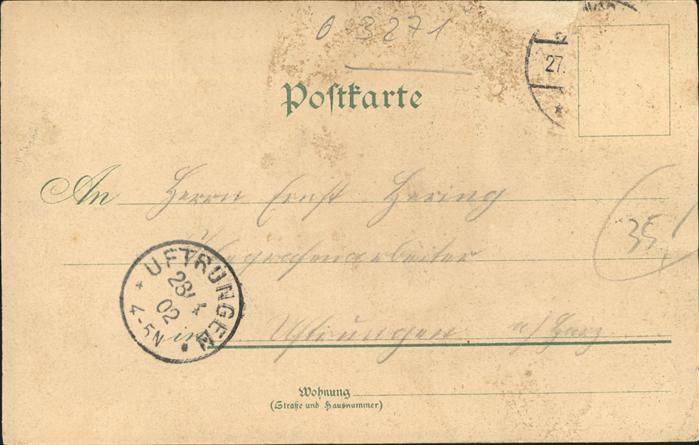 B 3271
27.
Postkarte
An Herrn Ernst Hering
Telegrafenarbeiter
in Uftrungen a/Harz
35
* UFTRUNGEN *
28/4
02
4-5N
Wohnung
(Straße und Hausnummer)